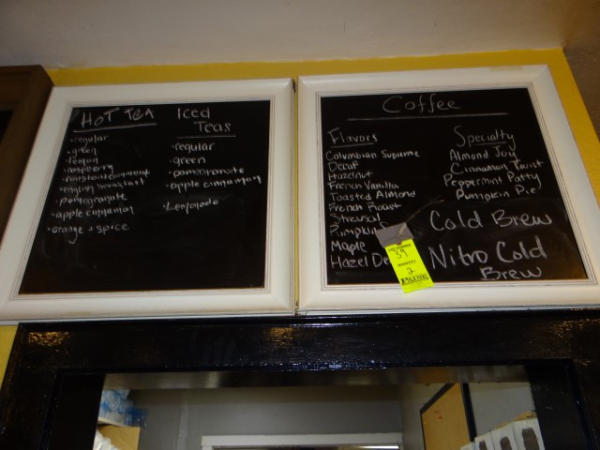 HOT TEA
regular
green
lemon
raspberry
english breakfast
pomegranate
apple cinnamon
orange + spice
Iced
Teas
regular
green
pomegranate
apple cinnamon
Lemonade
Coffee
Flavors
Columbian Supreme
Decaf
Hazelnut
French Vanilla
Toasted Almond
French Roast
Streusel
Pumpkin
Maple
Hazel De
Specialty
Almond Joy
Cinnamon Twist
Peppermint Patty
Pumpkin Pie
Cold Brew
Nitro Cold
Brew
39
2